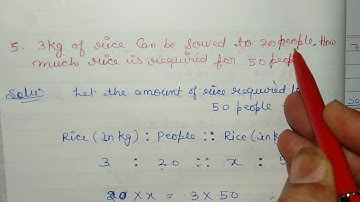 5. 3kg of rice can be served to 20 people. How
much rice is required for 50 people
Soluⁿ: Let the amount of rice required
50 people
Rice (in kg) : People :: Rice (in kg)
3 : 20 :: x :
20 × x = 3 × 50